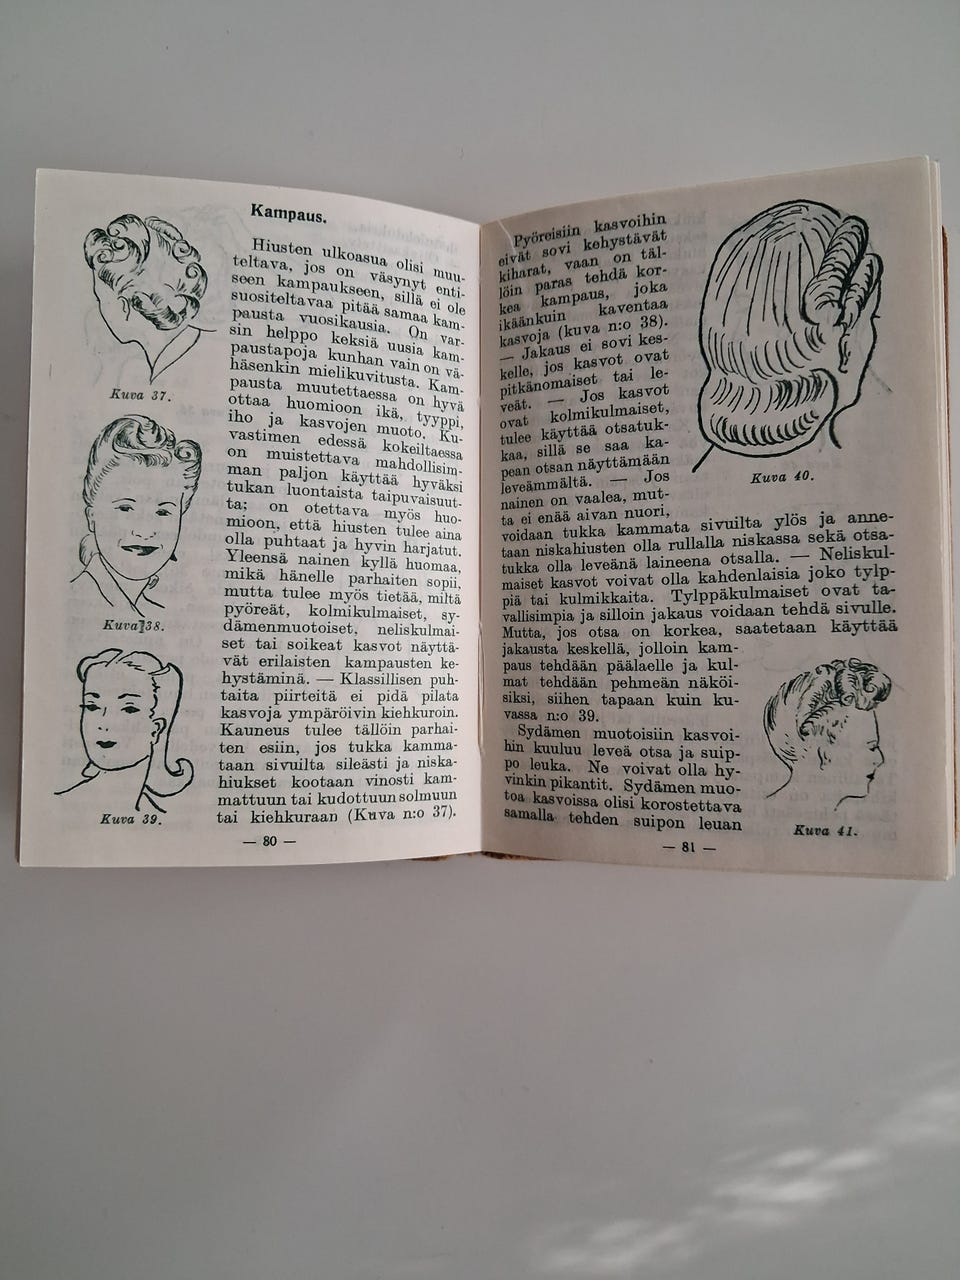 Kampaus.
Hiusten ulkoasua olisi muu-
teltava, jos on väsynyt enti-
seen kampaukseen, sillä ei ole
suositeltavaa pitää samaa kam-
pausta vuosikausia. On var-
sin helppo keksiä uusia kam-
paustapoja kunhan vain on vä-
häsenkin mielikuvitusta. Kam-
pausta muutettaessa on hyvä
ottaa huomioon ikä, tyyppi,
iho ja kasvojen muoto. Ku-
vastimen edessä kokeiltaessa
on muistettava mahdollisim-
man paljon käyttää hyväksi
tukan luontaista taipuvaisuut-
ta; on otettava myös huo-
mioon, että hiusten tulee aina
olla puhtaat ja hyvin harjatut.
Yleensä nainen kyllä huomaa,
mikä hänelle parhaiten sopii,
mutta tulee myös tietää, miltä
pyöreät, kolmikulmaiset, sy-
dämenmuotoiset, neliskulmai-
set tai soikeat kasvot näyttä-
vät erilaisten kampausten ke-
hystäminä. — Klassillisen puh-
taita piirteitä ei pidä pilata
kasvoja ympäröivin kiehkuroin.
Kauneus tulee tällöin parhai-
ten esiin, jos tukka kamma-
taan sivuilta sileästi ja niska-
hiukset kootaan vinosti kam-
mattuun tai kudottuun solmuun
tai kiehkuraan (Kuva n:o 37).
Kuva 37.
Kuva 38.
Kuva 39.
— 80 —
Pyöreisiin kasvoihin
eivät sovi kehystävät
kiharat, vaan on täl-
löin paras tehdä kor-
kea kampaus, joka
ikäänkuin kaventaa
kasvoja (kuva n:o 38).
— Jakaus ei sovi kes-
kelle, jos kasvot ovat
pitkänomaiset tai le-
veät. — Jos kasvot
ovat kolmikulmaiset,
tulee käyttää otsatuk-
kaa, sillä se saa ka-
pean otsan näyttämään
leveämmältä. — Jos
nainen on vaalea, mut-
ta ei enää aivan nuori,
voidaan tukka kammata sivuilta ylös ja anne-
taan niskahiusten olla rullalla niskassa sekä otsa-
tukka olla leveänä laineena otsalla. — Neliskul-
maiset kasvot voivat olla kahdenlaisia joko tylp-
piä tai kulmikkaita. Tylppäkulmaiset ovat ta-
vallisimpia ja silloin jakaus voidaan tehdä sivulle.
Mutta, jos otsa on korkea, saatetaan käyttää
jakausta keskellä, jolloin kam-
paus tehdään päälaelle ja kul-
mat tehdään pehmeän näköi-
siksi, siihen tapaan kuin ku-
vassa n:o 39.
Sydämen muotoisiin kasvoi-
hin kuuluu leveä otsa ja suip-
po leuka. Ne voivat olla hy-
vinkin pikantit. Sydämen muo-
toa kasvoissa olisi korostettava
samalla tehden suipon leuan
Kuva 40.
Kuva 41.
— 81 —